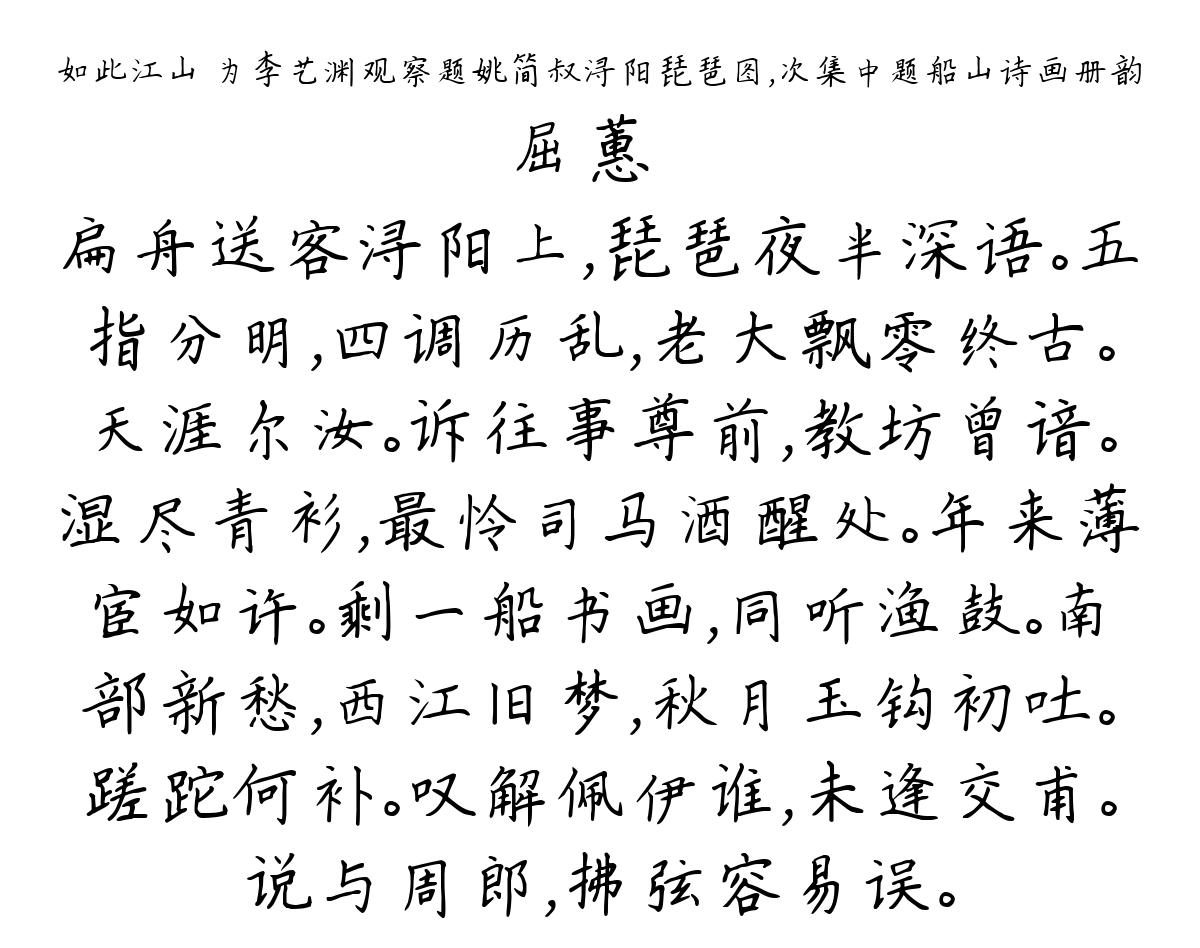 如此江山 为李艺渊观察题姚简叔浔阳琵琶图,次集中题船山诗画册韵
屈蕙
扁舟送客浔阳上,琵琶夜半深语。五
指分明,四调历乱,老大飘零终古。
天涯尔汝。诉往事尊前,教坊曾谙。
湿尽青衫,最怜司马酒醒处。年来薄
宦如许。剩一船书画,同听渔鼓。南
部新愁,西江旧梦,秋月玉钩初吐。
蹉跎何补。叹解佩伊谁,未逢交甫。
说与周郎,拂弦容易误。